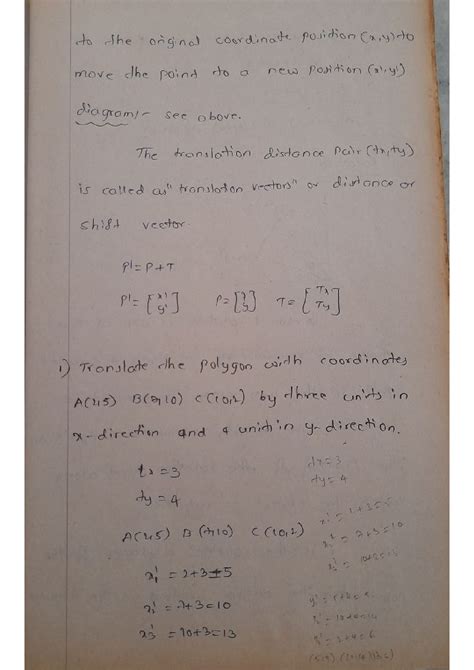 to the original coordinate position (x,y) to
move the point to a new position (x',y')
diagram:- see above.
The translation distance pair (tx,ty)
is called as "translation vectors" or distance or
shift vector.
P' = P+T
P' = [x' y'] P = [x y] T = [Tx Ty]
1) Translate the polygon with coordinates
A(2,5) B(7,10) C(10,2) by three units in
x-direction and 4 units in y-direction.
tx = 3
ty = 4
tx = 3
ty = 4
A(2,5) B(7,10) C(10,2)
x1' = 2+3=5
x2' = 7+3=10
x3' = 10+3=13